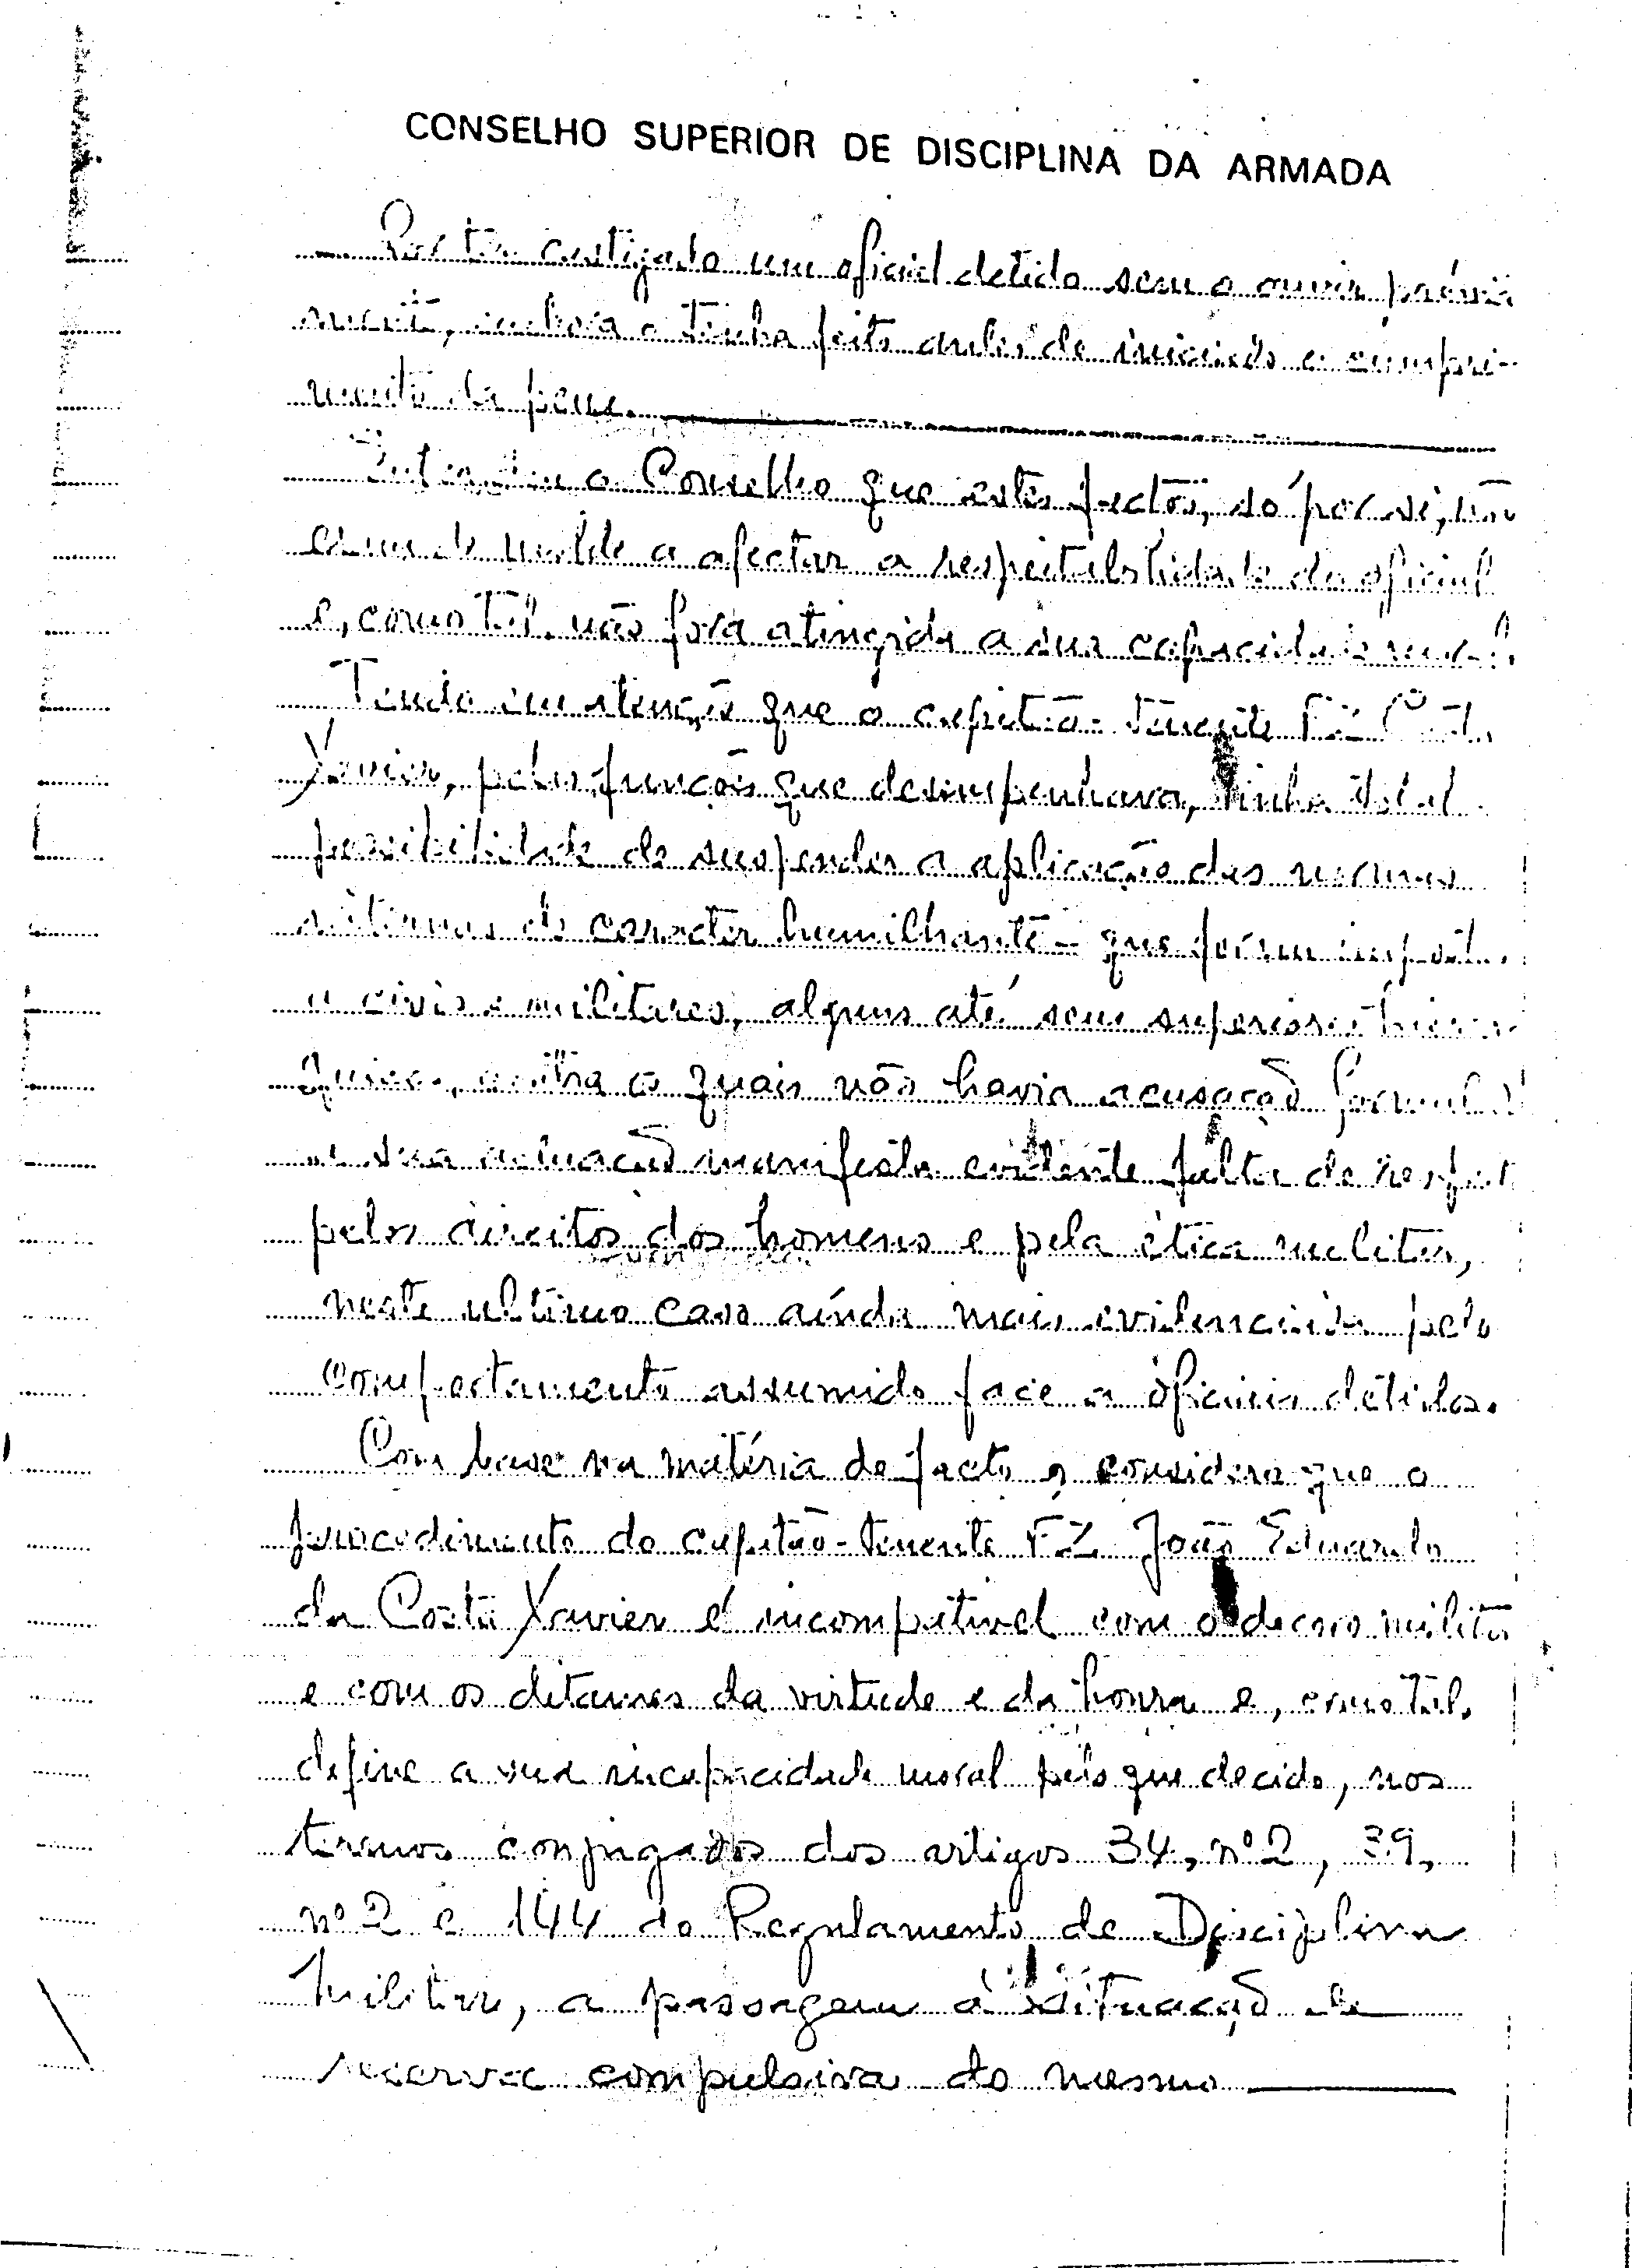 CONSELHO SUPERIOR DE DISCIPLINA DA ARMADA
Por ter castigado um oficial detido sem o ouvir prévia
mente, embora o tenha feito antes de iniciado o cumpri-
mento da pena.
Entendeu o Conselho que estes factos, só por si, não
eram de molde a afectar a respeitabilidade do oficial
e, como tal, não fora atingida a sua capacidade moral.
Tendo em atenção que o capitão-tenente FZ Costa
Xavier, pelas funções que desempenhava, tinha total
possibilidade de suspender a aplicação das normas
de caracter humilhante - que foram impostas
a civis e militares, alguns até seus superiores hierar-
quicos, contra os quais não havia acusação formulada
a sua actuação manifesta evidente falta de respeito
pelos direitos dos homens e pela ética militar,
neste ultimo caso ainda mais evidenciada pelo
comportamento assumido face a oficiais detidos.
Com base na matéria de facto e considera que o
procedimento do capitão-tenente FZ João Eduardo
da Costa Xavier é incompativel com o decoro militar
e com os ditames da virtude e da honra e, como tal,
define a sua incapacidade moral pelo que decido, nos
termos conjugados dos artigos 34, nº 2, 39,
nº 2 e 144 do Regulamento de Disciplina
Militar, a passagem à situação de
reserva compulsiva do mesmo